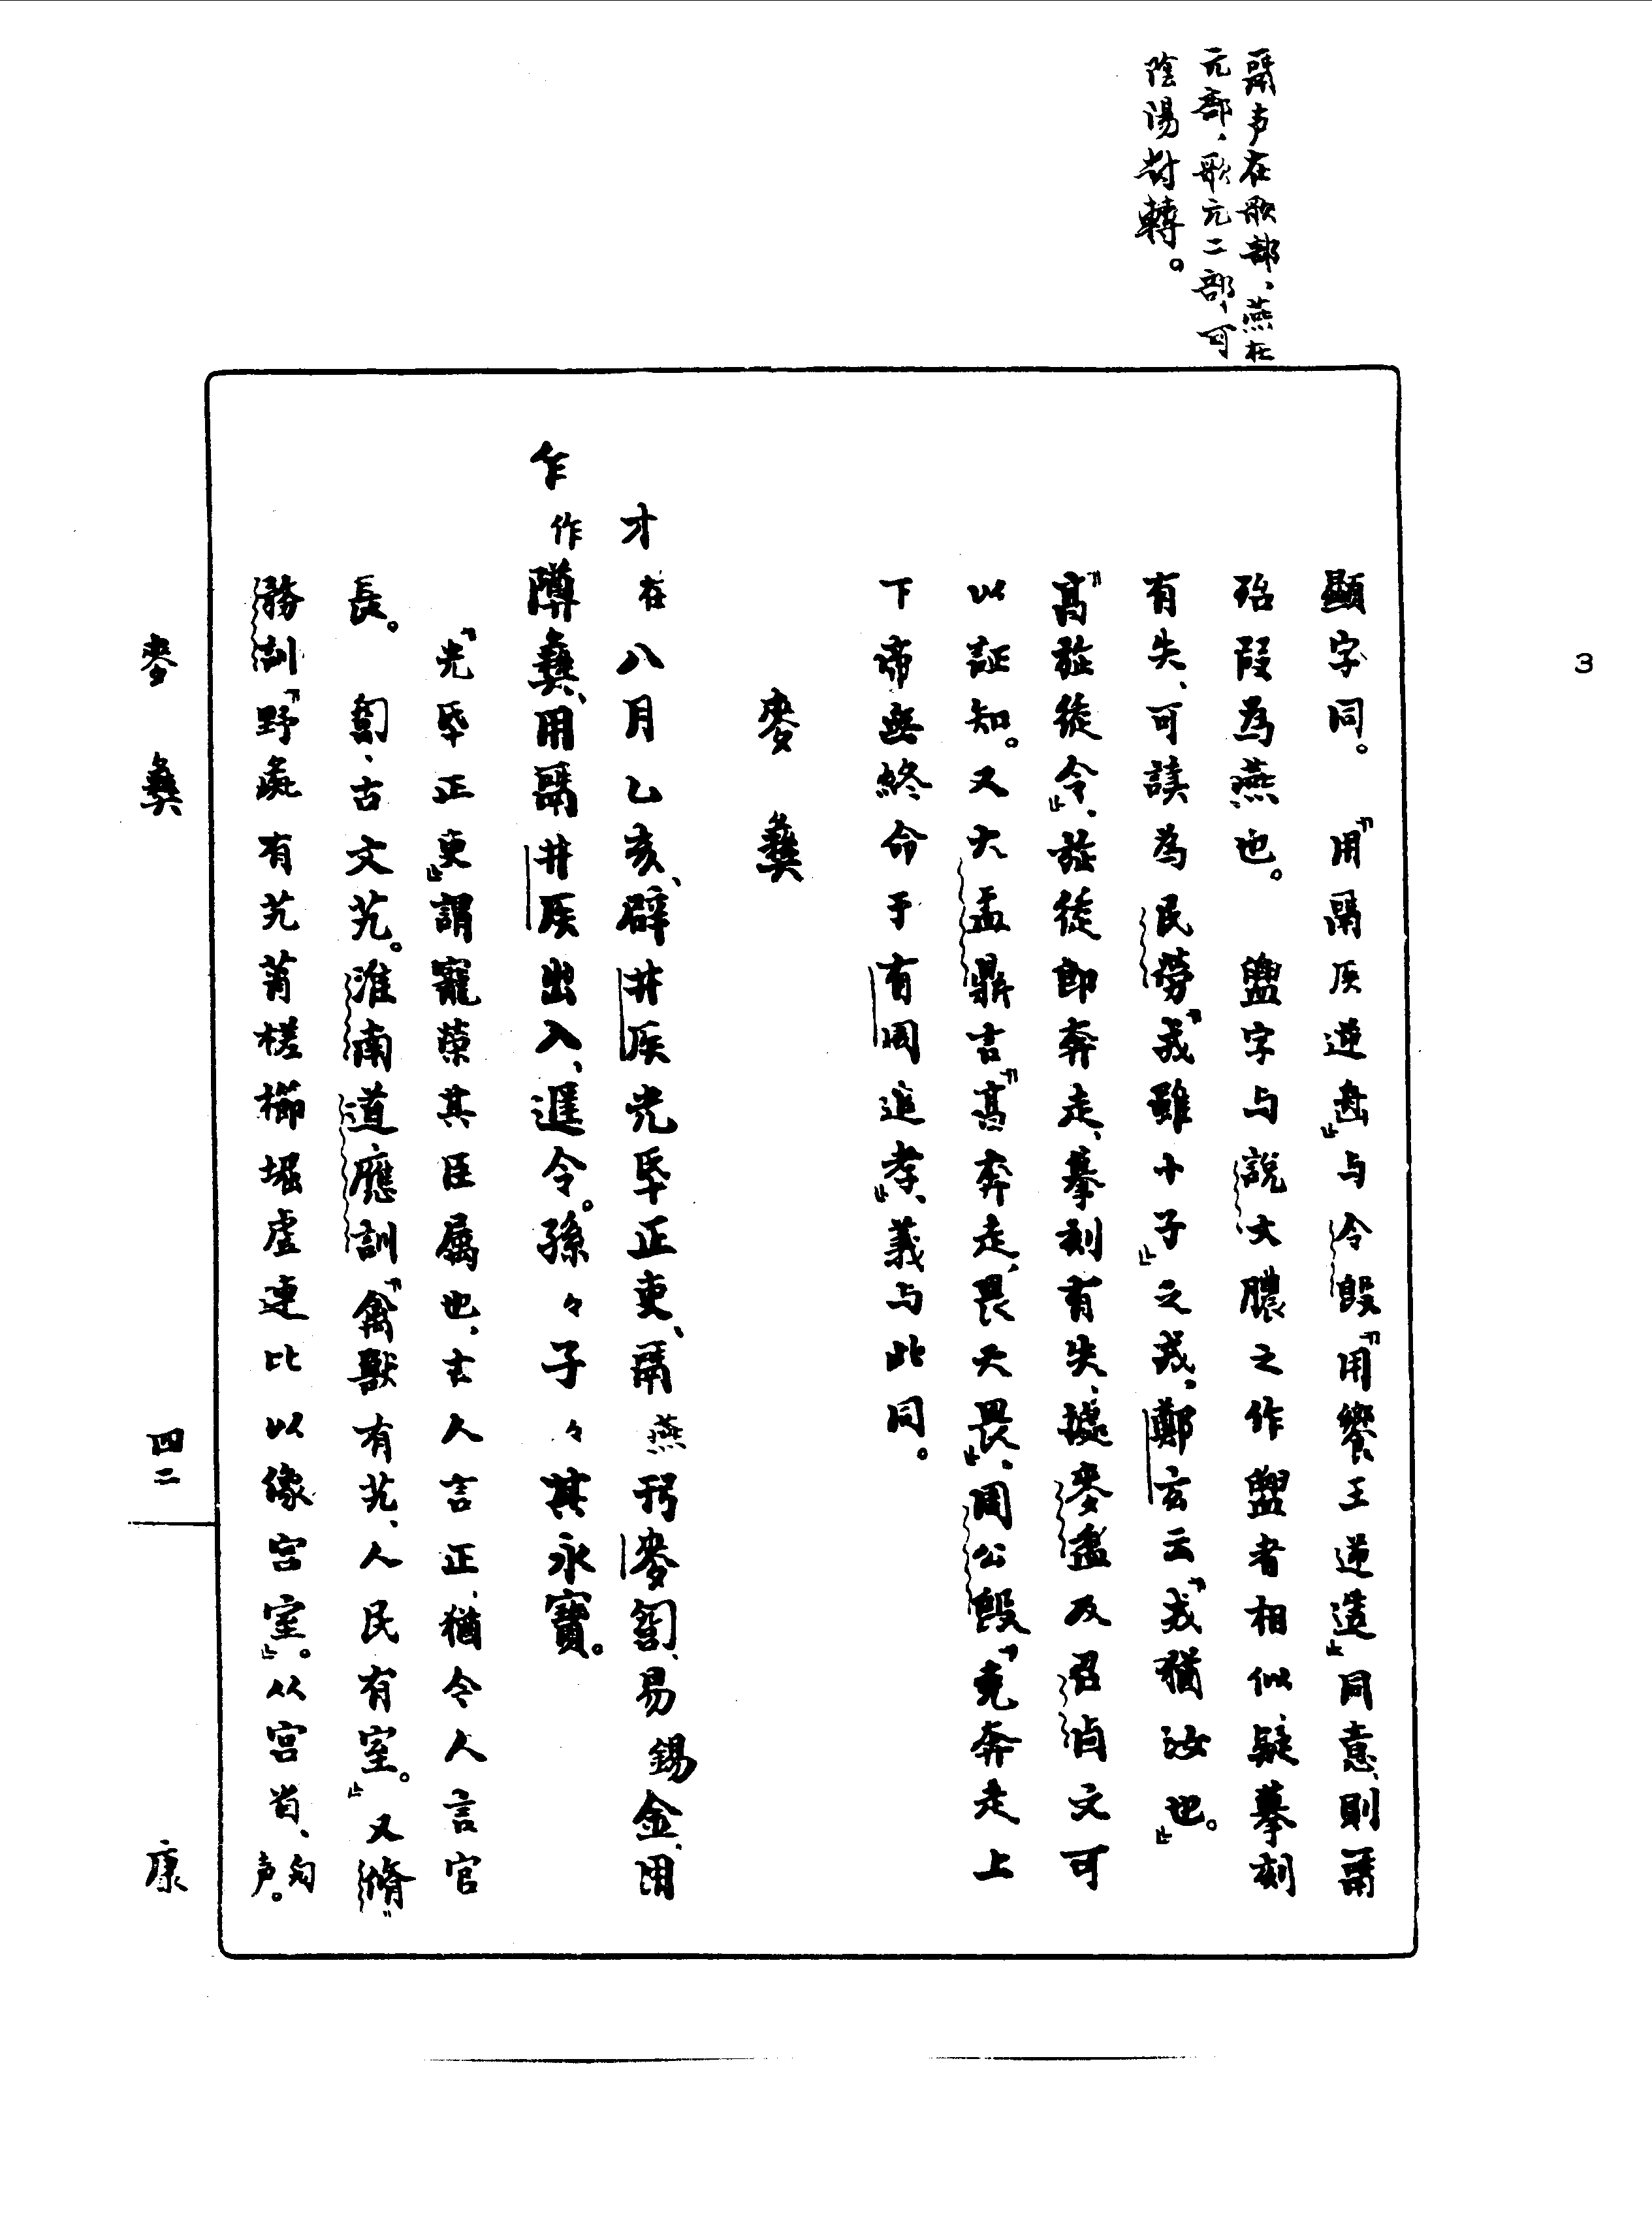 鬲声在歌部、燕在
元部、歌元二部、可
陰陽對轉。
3
顯字同。『用鬲侯逆𦨶』与令𣪘『用饗王逆造』同意、則鬲
殆叚為燕也。盥字与説文膿之作盥者相似、疑摹刻
有失、可讀為民勞『戎雖小子』之戎、鄭玄云『戎猶汝也。』
『髙旋徒令』、旋徒即奔走、摹刻有失、據麥盉及召卣文可
以証知。又大盂鼎言『髙奔走、畏天畏』、周公𣪘『克奔走上
下帝無終命于有周追孝』、義与此同。
麥彝
才在八月乙亥、辟井𥎦光氒正吏、鬲燕𢓊麥𡧊、易錫金、用
乍作𨺅彝、用鬲井𥎦出入、𨒙令。孫々子々其永寶。
『光氒正吏』謂寵榮其臣屬也、古人言正、猶今人言官
長。𡧊、古文艽。淮南道應訓『禽獸有艽、人民有室。』又脩
務訓『野處有艽莦槎櫛堀虛連比以像宮室』。从宮省、
九声。
麥彝 四二 康